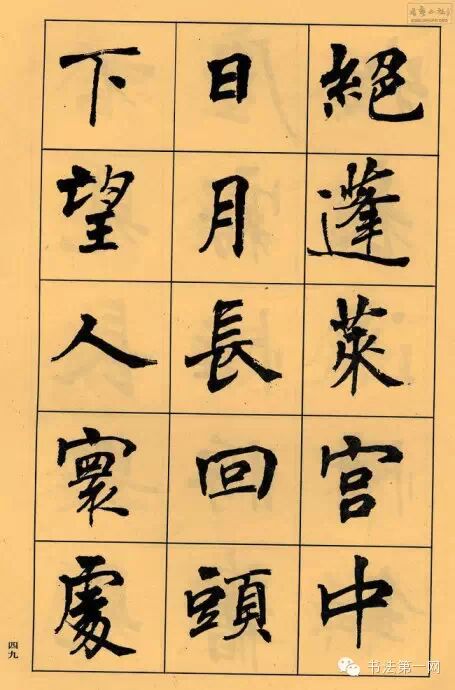 絕蓬萊宮中
日月長回頭
下望人寰處
四九
书法第一网